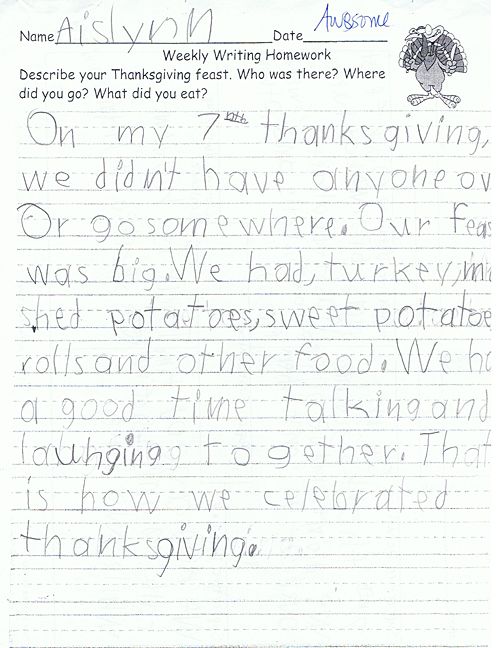 Name Aislynn Date Awesome
Weekly Writing Homework
Describe your Thanksgiving feast. Who was there? Where
did you go? What did you eat?
On my 7nth thanksgiving,
we didn't have anyone ov
Or go somewhere. Our feas
was big. We had, turkey, m
shed potatoes, sweet potatoe
rolls and other food. We ha
a good time talking and
lauhging together. That
is how we celebrated
thanksgiving.